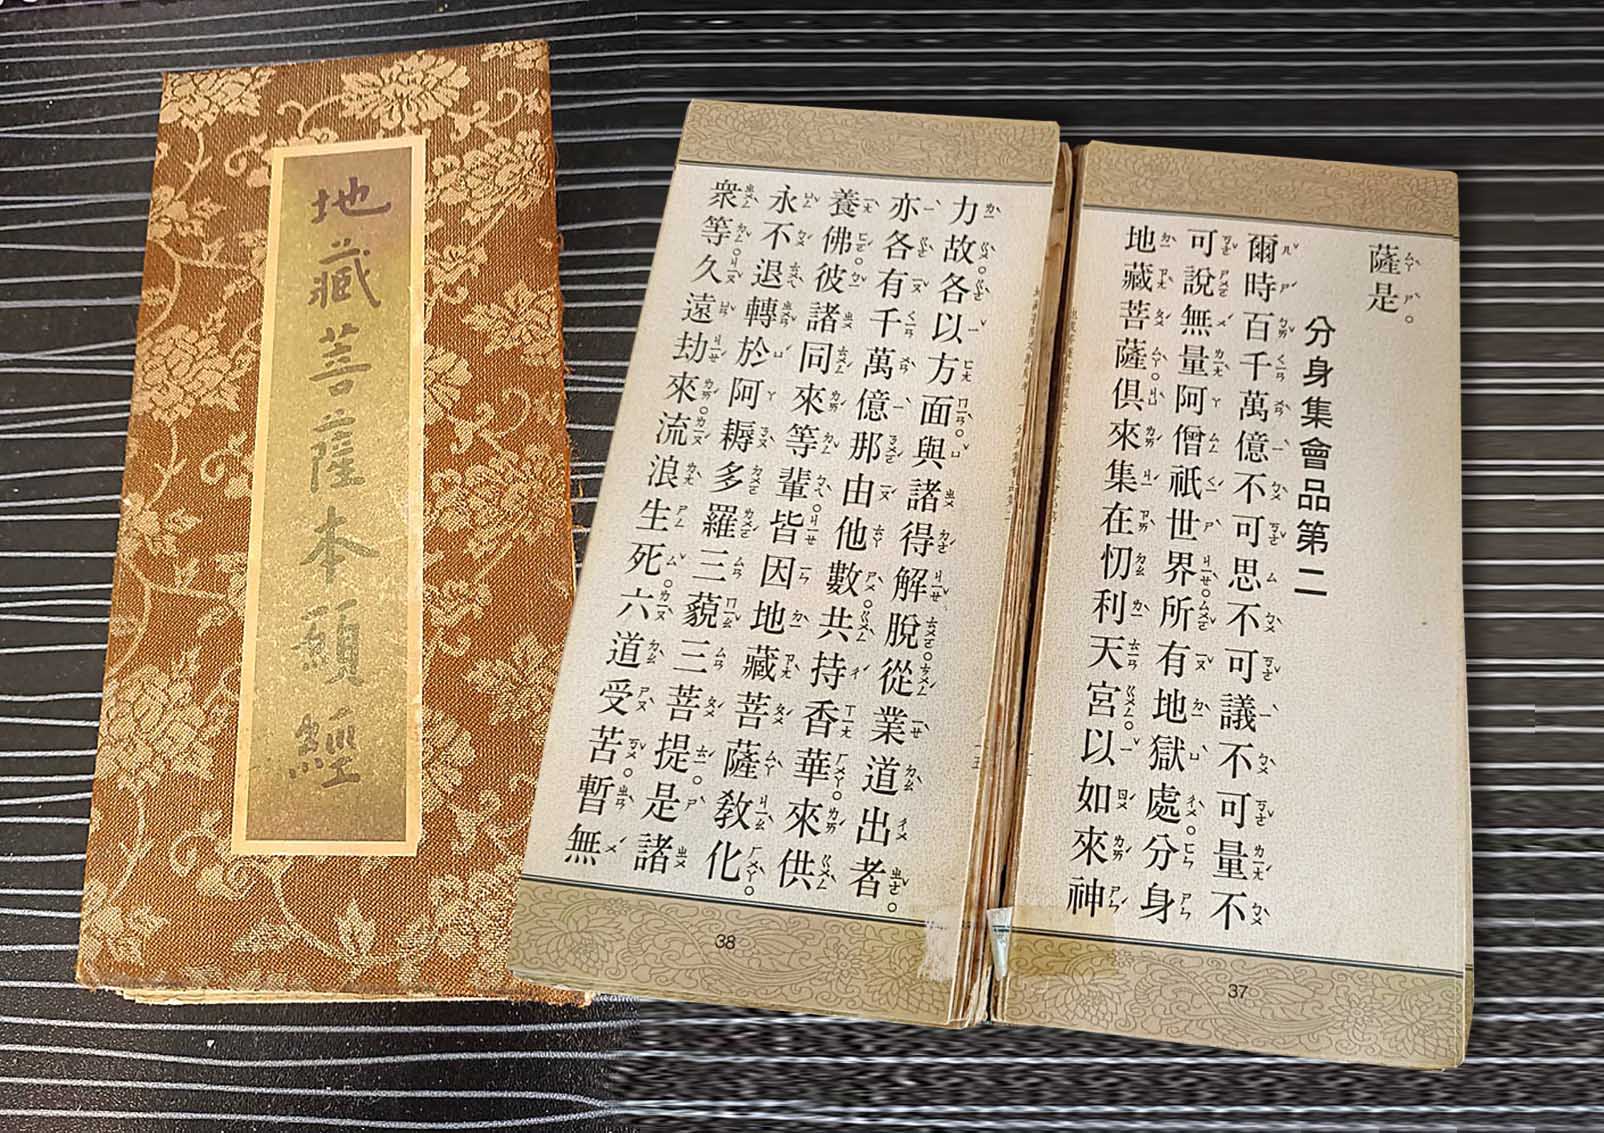 地藏菩薩本願經
薩是。
分身集會品第二
爾時百千萬億不可思不可議不可量不
可說無量阿僧祇世界。所有地獄處。分身
地藏菩薩。俱來集在忉利天宮。以如來神
37
力故。各以方面。與諸得解脫。從業道出者。
亦各有千萬億那由他數。共持香華。來供
養佛。彼諸同來等輩。皆因地藏菩薩教化。
永不退轉於阿耨多羅三藐三菩提。是諸
衆等。久遠劫來。流浪生死。六道受苦。暫無
38